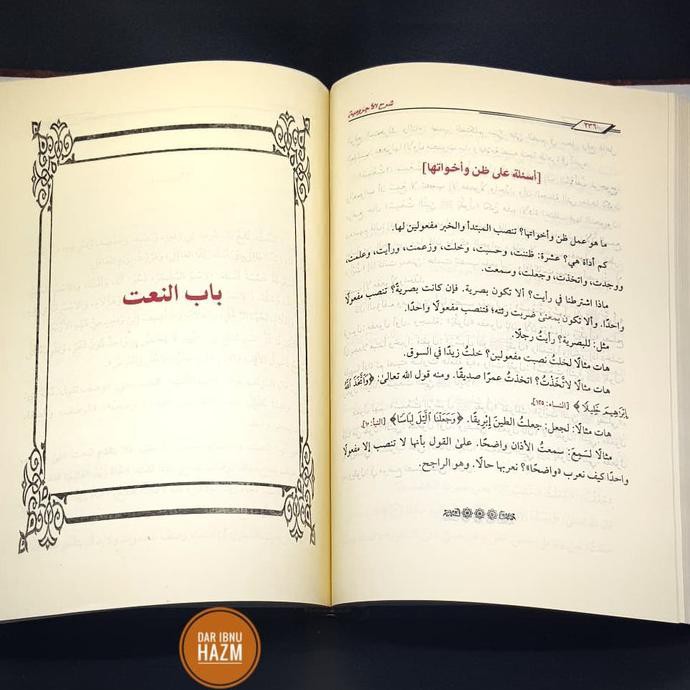 شرح الآجرومية
٢٣٦
[أسئلة على ظن وأخواتها]
ما هو عمل ظن وأخواتها؟ تنصب المبتدأ والخبر مفعولين لها.
كم أداة هي؟ عشرة: ظننت، وحسبت، وخلت، وزعمت، ورأيت، وعلمت،
ووجدت، واتخذت، وجعلت، وسمعت.
ماذا اشترطنا في رأيت؟ ألا تكون بصرية. فإن كانت بصرية؟ تنصب مفعولًا
واحدًا. وألا تكون بمعنى ضربت رئته؛ فتنصب مفعولًا واحدًا.
مثل: للبصرية؟ رأيتُ رجلًا.
هات مثالًا لخلتُ نصبت مفعولين؟ خلتُ زيدًا في السوق.
هات مثالًا لاتَّخَذْتُ؟ اتخذتُ عمرًا صديقًا. ومنه قول الله تعالى: ﴿وَٱتَّخَذَ ٱللَّهُ
إِبْرَٰهِيمَ خَلِيلًا﴾ [النساء: ١٢٥].
هات مثالًا: لجعل: جعلتُ الطينَ إبْريقًا. ﴿وَجَعَلْنَا ٱلَّيْلَ لِبَاسًا﴾ [النبأ: ١٠].
مثالًا لسَمِعَ: سمعتُ الأذان واضحًا. على القول بأنها لا تنصب إلا مفعولًا
واحدًا كيف نعرب «واضحًا»؟ نعربها حالًا. وهو الراجح.
باب النعت
DAR IBNU
HAZM